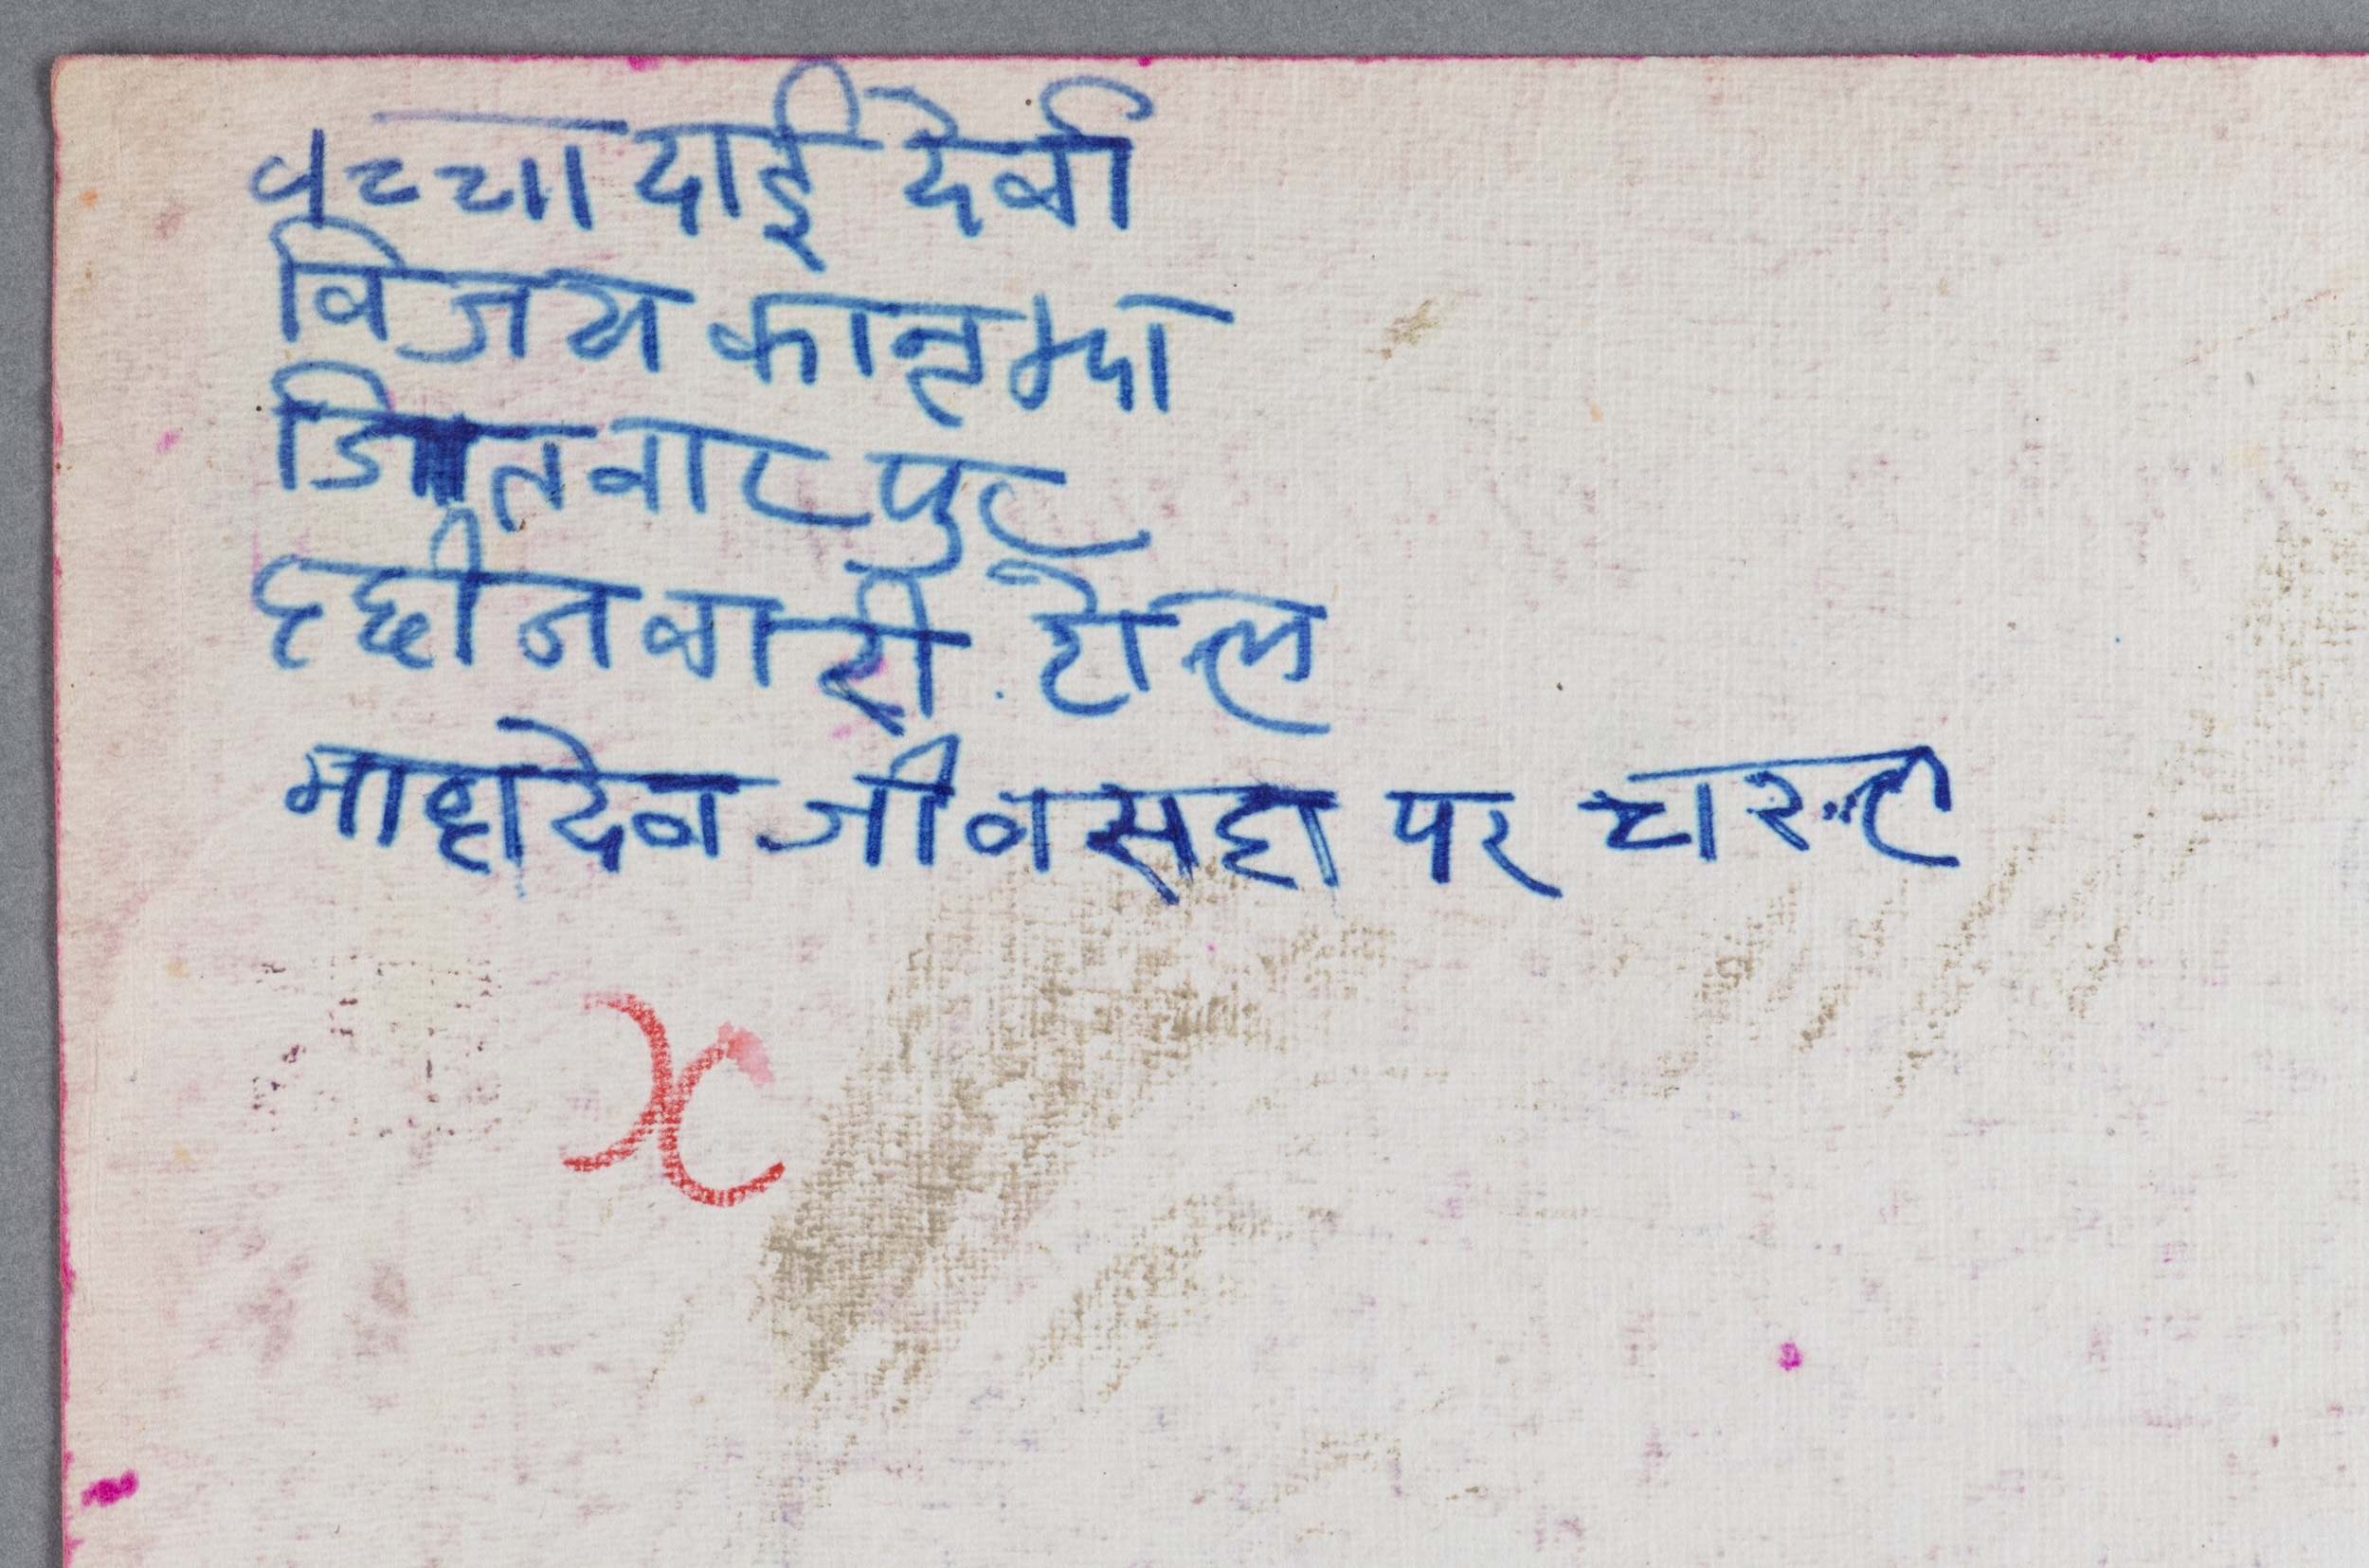 वच्चा दाई देवी
विजय कान्त झा
जितवारपुर
दछीनवारी टोल
माहादेव जी वसहा पर चरल